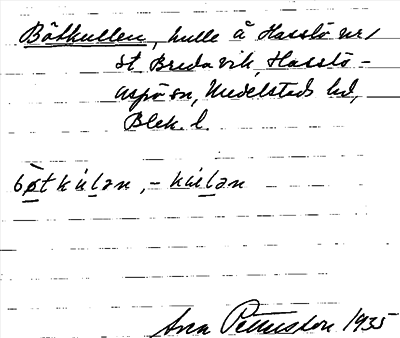 Båtkullen, kulle å Hasslö nr 1
st. Bredavik, Hasslö-
aspö sn, Medelstads hd,
Blek. l.
bøtkùlən, -kùlən
Pettersson 1935